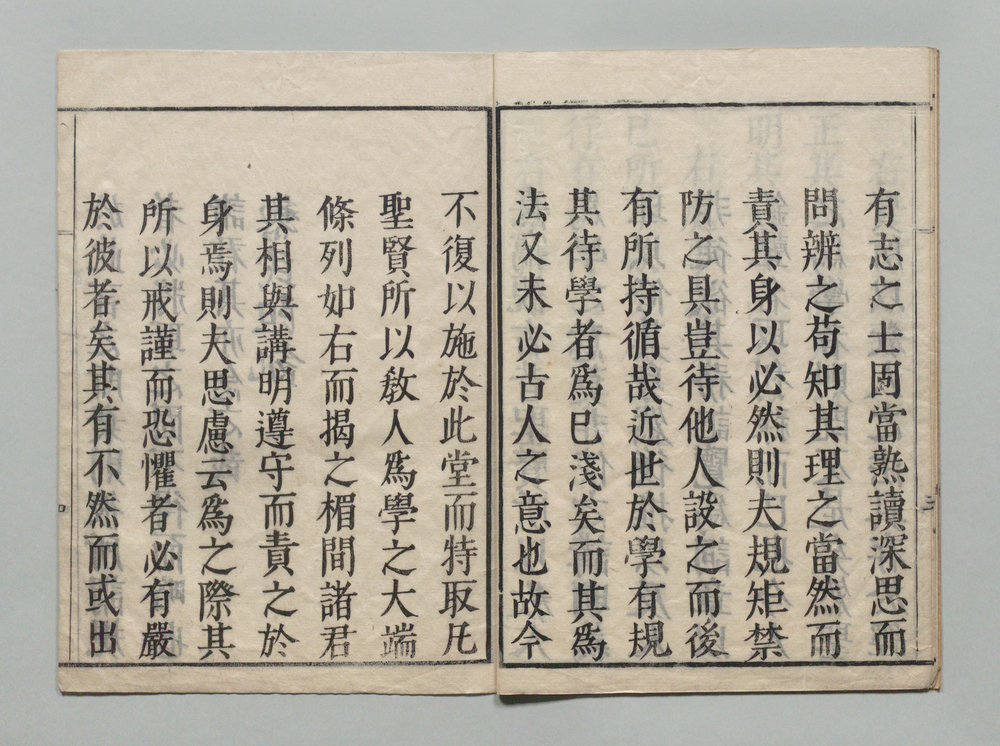 有志之士固當熟讀深思而
問辨之苟知其理之當然而
責其身以必然則夫規矩禁
防之具豈待他人設之而後
有所持循哉近世於學有規
其待學者爲已淺矣而其爲
法又未必古人之意也故今
不復以施於此堂而特取凡
聖賢所以敎人爲學之大端
條列如右而揭之楣間諸君
其相與講明遵守而責之於
身焉則夫思慮云爲之際其
所以戒謹而恐懼者必有嚴
於彼者矣其有不然而或出